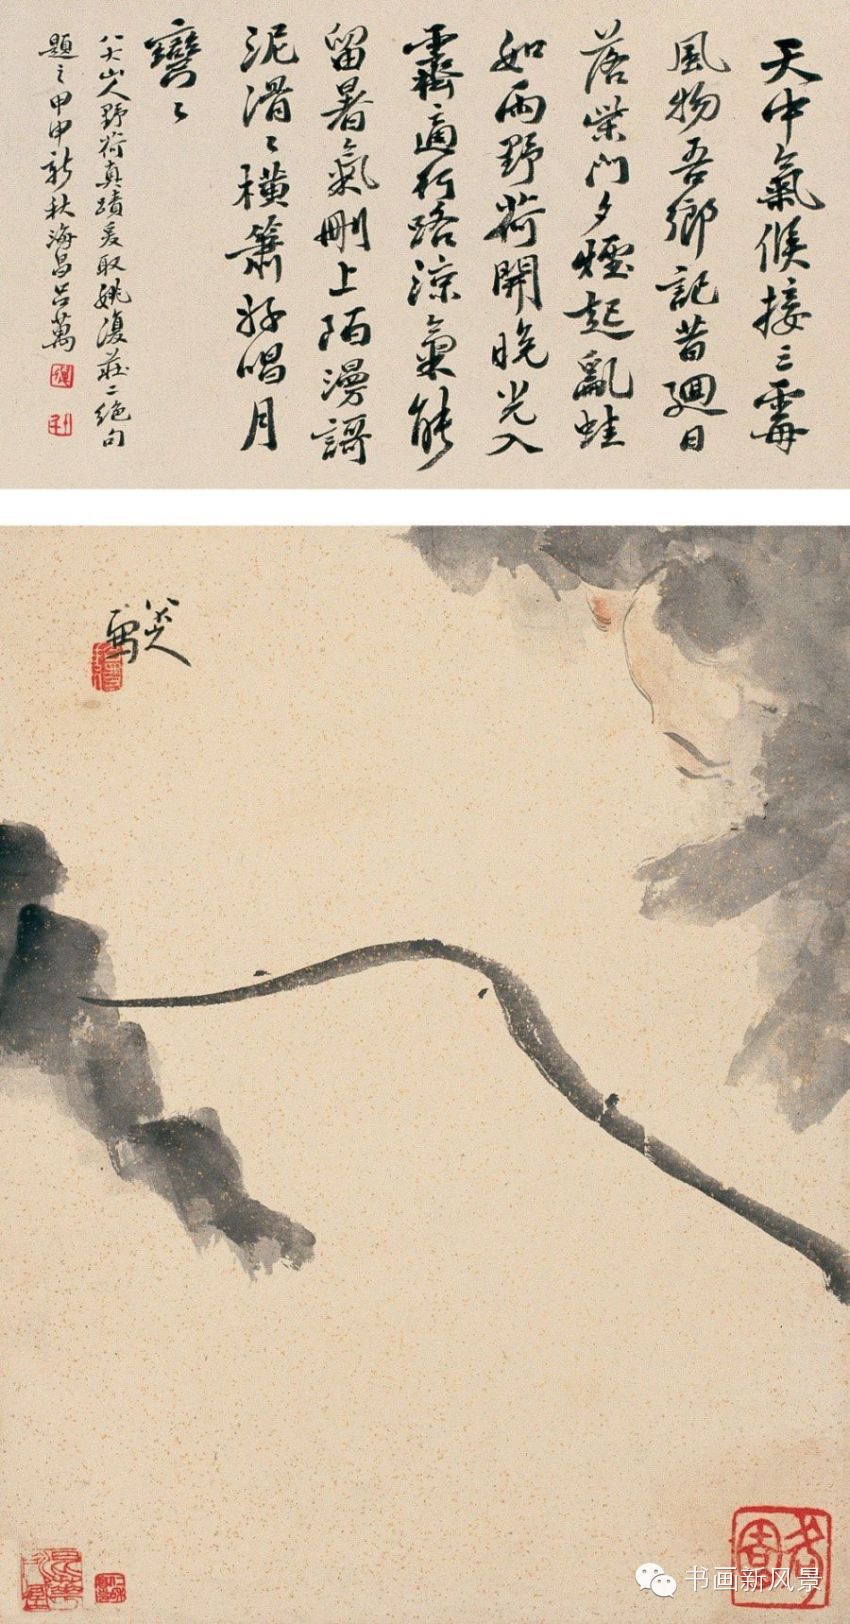 天中氣候接三霉
風物吾鄉記昔廻日
落柴門夕煙起亂蛙
如雨野荷開晚光入
霽適行路涼氣能
留暑氣刪上陌漫謌
泥滑〻橫簫好唱月
彎〻
八大山人野荷真蹟爰取姚復莊二絕句
題之甲申新秋海昌呂萬
八大山人
寫
书画新风景